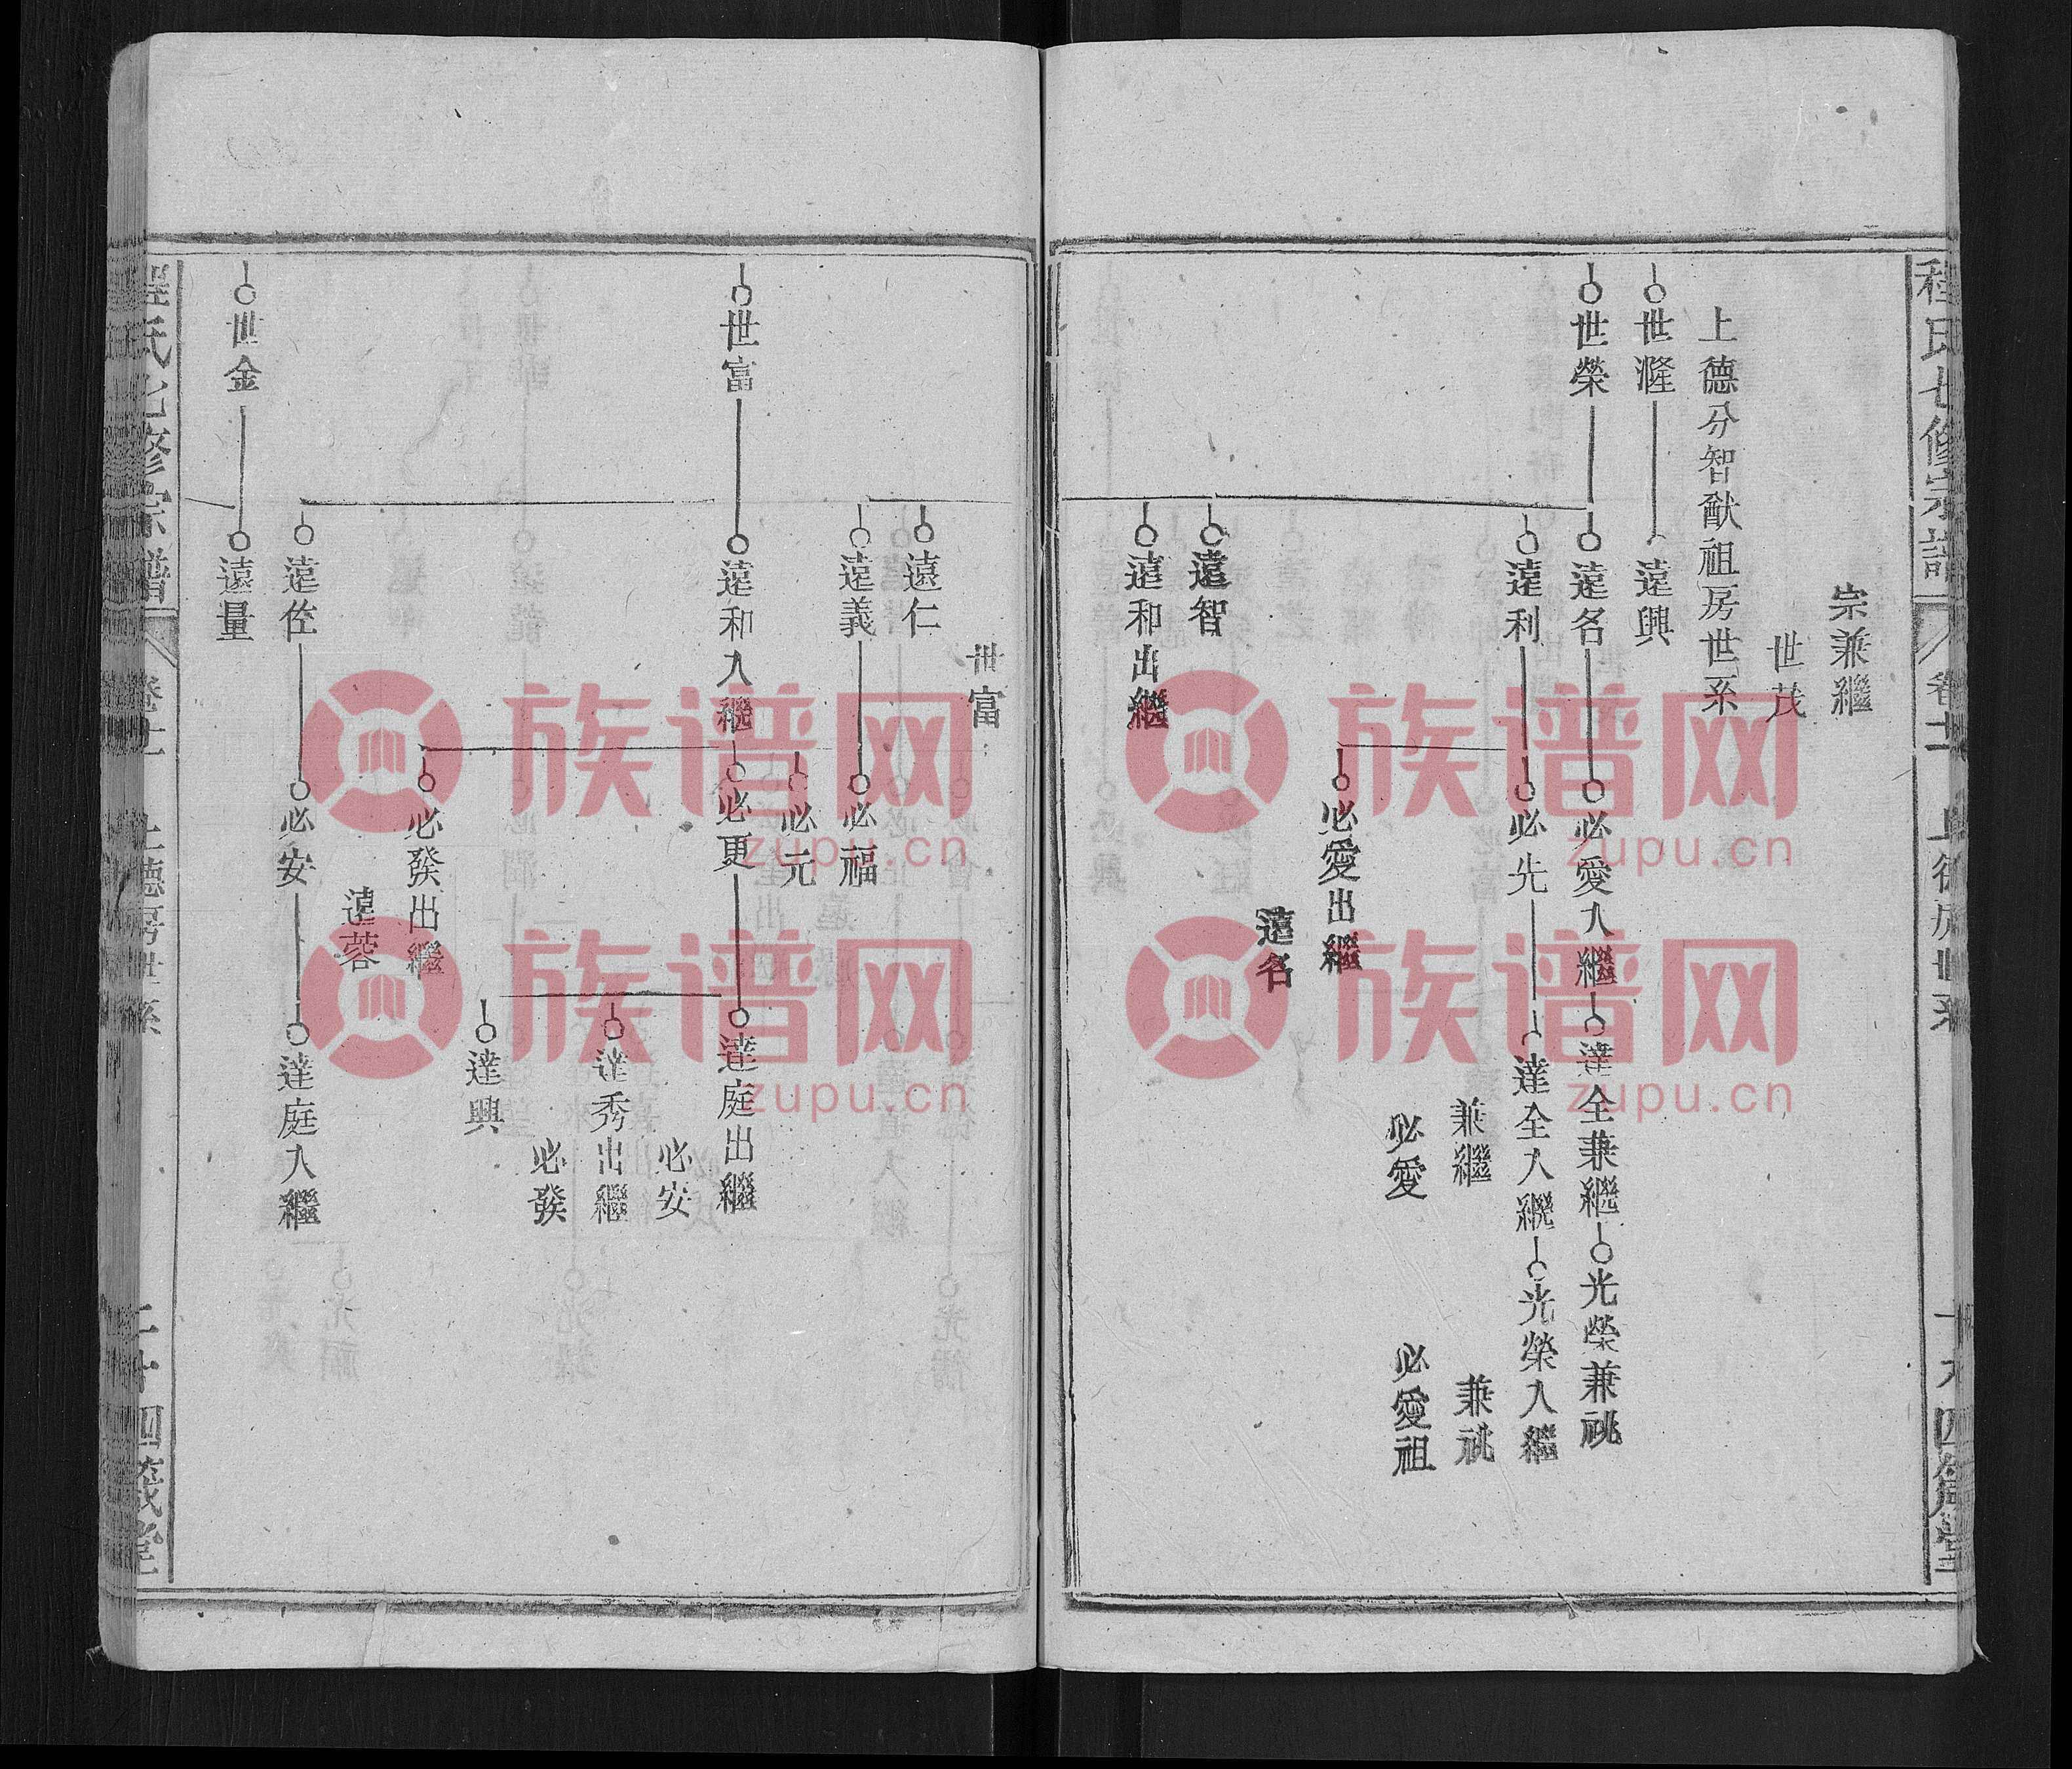 程氏七修宗譜
卷十一
上德房世系
宗兼繼
世茂
上德分智猷祖房世系
世漋
遠興
世榮
遠名
必愛入繼
達全兼繼
光榮兼祧
遠利
必先
達全入繼
光榮入繼
兼繼
兼祧
必愛
必愛祖
必愛出繼
遠名
遠智
遠和出繼
世富
遠仁
遠義
必福
必元
世富
遠和入繼
必更
達庭出繼
必安
達秀出繼
必發
達興
必發出繼
遠蓉
遠佐
必安
達庭入繼
世金
遠量
程氏七修宗譜
上德房世系
二十
四箴堂
族谱网
zupu.cn
族谱网
zupu.cn
族谱网
zupu.cn
族谱网
zupu.cn